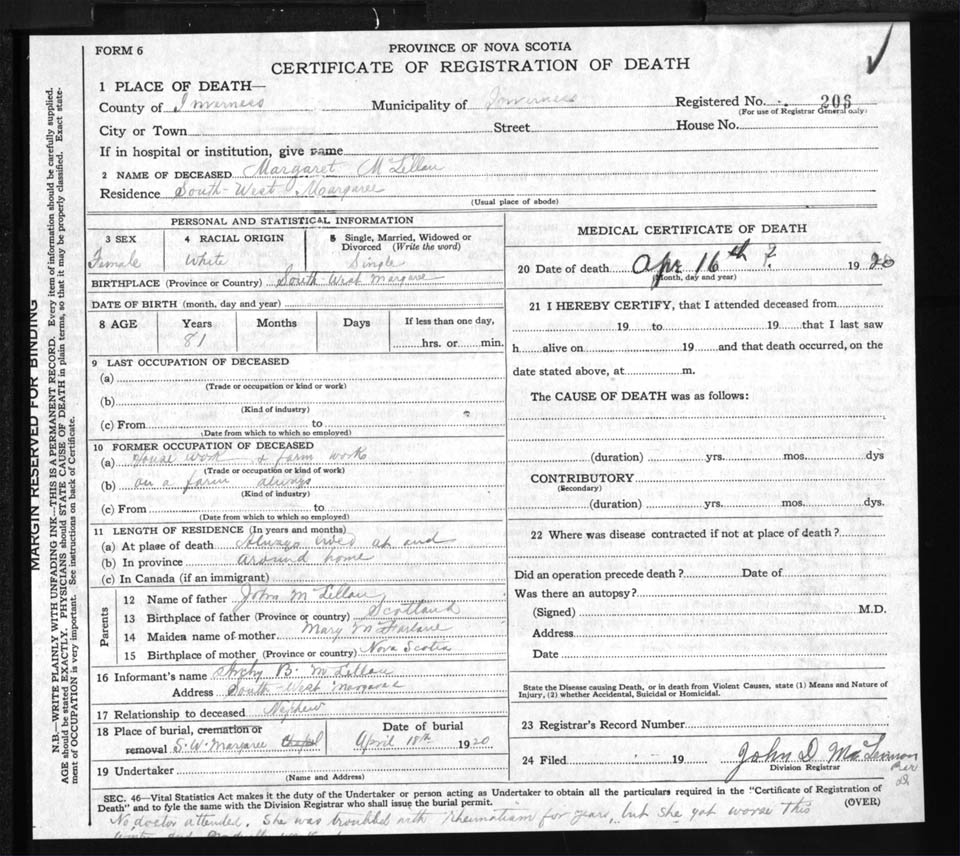 FORM 6
PROVINCE OF NOVA SCOTIA
CERTIFICATE OF REGISTRATION OF DEATH
1 PLACE OF DEATH—
County of Inverness Municipality of Inverness Registered No. 208
(For use of Registrar General only)
City or Town Street House No.
If in hospital or institution, give name
2 NAME OF DECEASED Margaret McLellan
Residence South-West Margaree
(Usual place of abode)
PERSONAL AND STATISTICAL INFORMATION
3 SEX 4 RACIAL ORIGIN 5 Single, Married, Widowed or Divorced (Write the word)
Female White Single
BIRTHPLACE (Province or Country) South West Margaree
DATE OF BIRTH (month, day and year)
8 AGE Years Months Days If less than one day,
81 hrs. or min.
9 LAST OCCUPATION OF DECEASED
(a)
(Trade or occupation or kind or work)
(b)
(Kind of industry)
(c) From to
(Date from which to which so employed)
10 FORMER OCCUPATION OF DECEASED
(a) House work & farm work
(Trade or occupation or kind of work)
(b) on a farm always
(Kind of industry)
(c) From to
(Date from which to which so employed)
11 LENGTH OF RESIDENCE (In years and months)
(a) At place of death Always lived at and
(b) In province around home
(c) In Canada (if an immigrant)
Parents
12 Name of father John McLellan
13 Birthplace of father (Province or country) Scotland
14 Maiden name of mother Mary McFarlane
15 Birthplace of mother (Province or country) Nova Scotia
16 Informant's name B. McLellan
Address South-West Margaree
17 Relationship to deceased Nephew
18 Place of burial, cremation or removal S. W. Margaree Chapel
Date of burial April 18th 1920
19 Undertaker
(Name and Address)
MEDICAL CERTIFICATE OF DEATH
20 Date of death Apr 16th ? 1920
(Month, day and year)
21 I HEREBY CERTIFY, that I attended deceased from
19 to 19 that I last saw
h alive on 19 and that death occurred, on the
date stated above, at m.
The CAUSE OF DEATH was as follows:
(duration) yrs. mos. dys
CONTRIBUTORY
(Secondary)
(duration) yrs. mos. dys.
22 Where was disease contracted if not at place of death?
Did an operation precede death? Date of
Was there an autopsy?
(Signed) M.D.
Address
Date
State the Disease causing Death, or in death from Violent Causes, state (1) Means and Nature of
Injury, (2) whether Accidental, Suicidal or Homicidal.
23 Registrar's Record Number
24 Filed 19 John D McLennan
Division Registrar
SEC. 46—Vital Statistics Act makes it the duty of the Undertaker or person acting as Undertaker to obtain all the particulars required in the "Certificate of Registration of
Death" and to fyle the same with the Division Registrar who shall issue the burial permit.
(OVER)
No doctor attended. She was troubled with rheumatism for years, but she got worse this
MARGIN RESERVED FOR BINDING
N.B.—WRITE PLAINLY WITH UNFADING INK—THIS IS A PERMANENT RECORD. Every item of information should be carefully supplied.
AGE should be stated EXACTLY. PHYSICIANS should STATE CAUSE OF DEATH in plain terms, so that it may be properly classified. Exact state-
ment of OCCUPATION is very important. See instructions on back of Certificate.